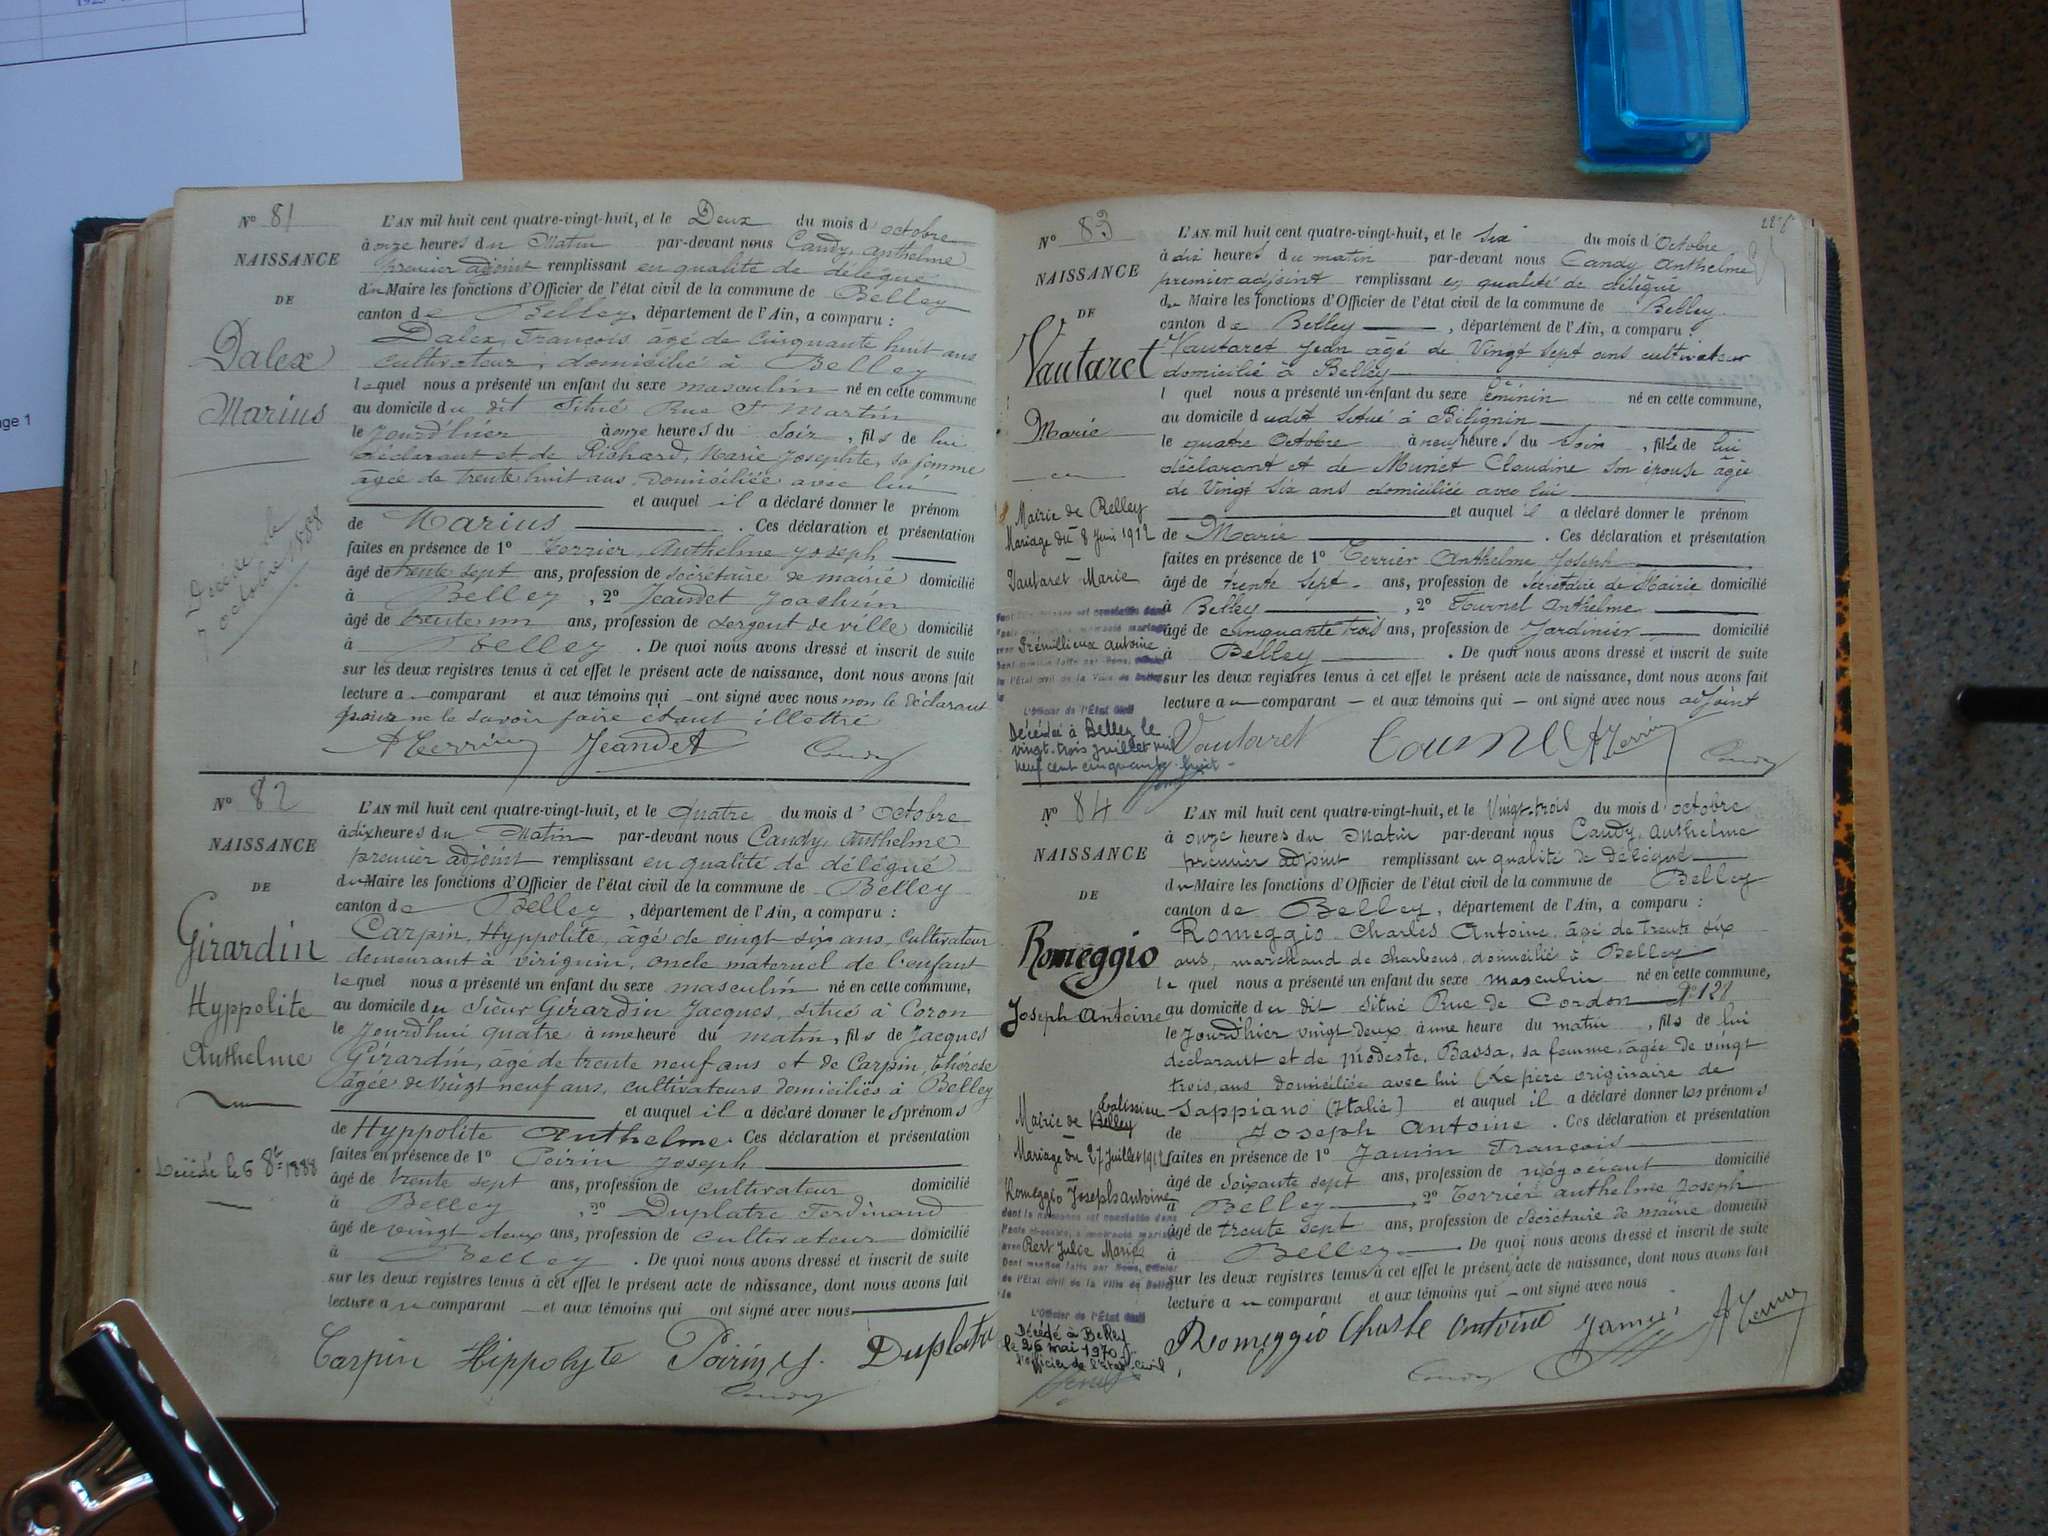 age 1
N° 81
NAISSANCE
DE
Dalex
Marius
Décédé le
octobre 1888
L'AN mil huit cent quatre-vingt-huit, et le Deux du mois d'octobre
à onze heures du Matin par-devant nous Candy, Anthelme
premier adjoint remplissant en qualité de délégué
du Maire les fonctions d'Officier de l'état civil de la commune de Belley
canton de Belley, département de l'Ain, a comparu :
Dalex, François, âgé de Cinquante huit ans
cultivateur, domicilié à Belley
lequel nous a présenté un enfant du sexe masculin né en cette commune
au domicile du dit Situé Rue St Martin
le jourd'hier à onze heures du Soir, fils de lui
déclarant et de Richard, Marie Josephte, sa femme
âgée de trente huit ans, domiciliée avec lui
et auquel il a déclaré donner le prénom
de Marius. Ces déclaration et présentation
faites en présence de 1° Terrier, Anthelme Joseph
âgé de trente sept ans, profession de secrétaire de mairie domicilié
à Belley, 2° Jeandet Joachim
âgé de trente un ans, profession de sergent de ville domicilié
à Belley. De quoi nous avons dressé et inscrit de suite
sur les deux registres tenus à cet effet le présent acte de naissance, dont nous avons fait
lecture a comparant et aux témoins qui ont signé avec nous non le déclarant
pour ne le savoir faire étant illettré
ATerrier Jeandet Candy
N° 82
NAISSANCE
DE
Girardin
Hyppolite
Anthelme
Décédé le 6 8bre 1888
L'AN mil huit cent quatre-vingt-huit, et le quatre du mois d'Octobre
à dix heures du Matin par-devant nous Candy, Anthelme
premier adjoint remplissant en qualité de délégué
du Maire les fonctions d'Officier de l'état civil de la commune de Belley
canton de Belley, département de l'Ain, a comparu :
Carpin, Hyppolite, âgé de vingt six ans, cultivateur
demeurant à virignin, oncle maternel de l'enfant
lequel nous a présenté un enfant du sexe masculin né en cette commune,
au domicile du Sieur Girardin Jacques, situé à Coron
le jourd'hui quatre à une heure du matin, fils de Jacques
Girardin, agé de trente neuf ans et de Carpin, Thérèse
âgée de vingt neuf ans, cultivateurs domiciliés à Belley
et auquel il a déclaré donner les prénoms
de Hyppolite Anthelme. Ces déclaration et présentation
faites en présence de 1° Poirin Joseph
âgé de trente sept ans, profession de cultivateur domicilié
à Belley, 2° Duplatre Ferdinand
âgé de vingt deux ans, profession de cultivateur domicilié
à Belley. De quoi nous avons dressé et inscrit de suite
sur les deux registres tenus à cet effet le présent acte de naissance, dont nous avons fait
lecture au comparant et aux témoins qui ont signé avec nous
Carpin Hippolyte Poirin J. Duplatre
Candy
N° 83
NAISSANCE
DE
Vautaret
Marie
Mairie de Belley
Mariage du 8 Juin 1912
Vautaret Marie
avec Prémillieux antoine
L'Officier de l'Etat Civil
Décédée à Belley le
vingt-trois juillet mil
neuf cent cinquante-huit
L'AN mil huit cent quatre-vingt-huit, et le Six du mois d'Octobre
à dix heures du matin par-devant nous Candy Anthelme
premier adjoint remplissant en qualité de délégué
du Maire les fonctions d'Officier de l'état civil de la commune de Belley
canton de Belley, département de l'Ain, a comparu :
Vautaret Jean âgé de Vingt sept ans cultivateur
domicilié à Belley
l quel nous a présenté un enfant du sexe féminin né en cette commune,
au domicile dudit situé à Bilignin
le quatre Octobre à neuf heures du Soir, fille de lui
déclarant et de Muniet Claudine son épouse âgée
de Vingt six ans domiciliée avec lui
et auquel il a déclaré donner le prénom
de Marie. Ces déclaration et présentation
faites en présence de 1° Terrier Anthelme Joseph
âgé de trente sept ans, profession de Secrétaire de Mairie domicilié
à Belley, 2° Tournel Anthelme
âgé de cinquante trois ans, profession de Jardinier domicilié
à Belley. De quoi nous avons dressé et inscrit de suite
sur les deux registres tenus à cet effet le présent acte de naissance, dont nous avons fait
lecture au comparant et aux témoins qui ont signé avec nous adjoint
Vautaret ATerrier Candy
N° 84
NAISSANCE
DE
Romeggio
Joseph Antoine
Mairie de Belley
Mariage du 27 Juillet 1912
Romeggio Joseph antoine
avec Rert Julie Marie
L'Officier de l'Etat Civil
Décédé à Belley
le 26 mai 1970
l'officier de l'état-civil
L'AN mil huit cent quatre-vingt-huit, et le Vingt-trois du mois d'octobre
à onze heures du Matin par-devant nous Candy, Anthelme
premier adjoint remplissant en qualité de délégué
du Maire les fonctions d'Officier de l'état civil de la commune de Belley
canton de Belley, département de l'Ain, a comparu :
Romeggio Charles Antoine, âgé de trente six
ans, marchand de charbons, domicilié à Belley
le quel nous a présenté un enfant du sexe masculin né en cette commune,
au domicile du dit situé Rue de Cordon N° 121
le jourd'hier vingt deux à une heure du matin, fils de lui
déclarant et de Modeste, Bassa, sa femme, âgée de vingt
trois ans domiciliée avec lui (Le père originaire de
Sappiano (Italie) et auquel il a déclaré donner les prénoms
de Joseph Antoine. Ces déclaration et présentation
faites en présence de 1° Jamin François
âgé de Soixante sept ans, profession de négociant domicilié
à Belley 2° Terrier anthelme Joseph
âgé de trente sept ans, profession de Secrétaire de mairie domicilié
à Belley De quoi nous avons dressé et inscrit de suite
sur les deux registres tenus à cet effet le présent acte de naissance, dont nous avons fait
lecture au comparant et aux témoins qui ont signé avec nous
Romeggio Charle Antoine Jamin ATerrier
Candy